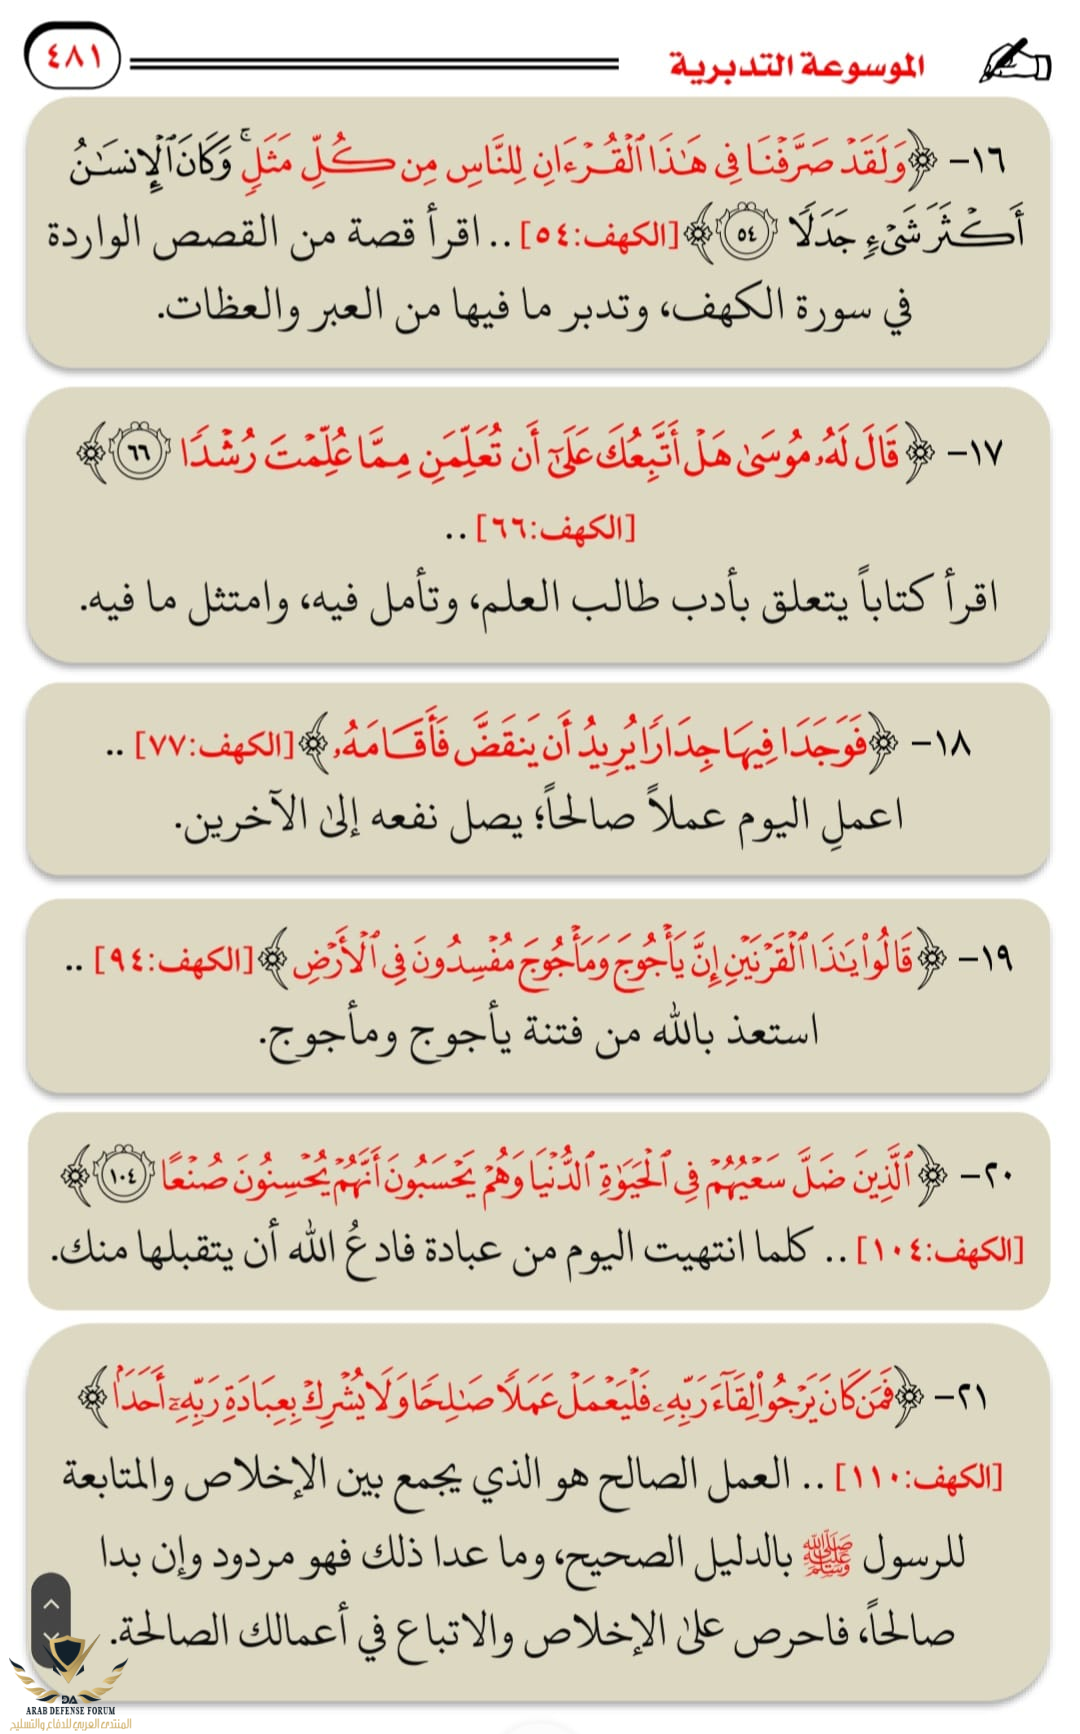 الموسوعة التدبرية
٤٨١
١٦- ﴿وَلَقَدْ صَرَّفْنَا فِى هَٰذَا ٱلْقُرْءَانِ لِلنَّاسِ مِن كُلِّ مَثَلٍ ۚ وَكَانَ ٱلْإِنسَٰنُ
أَكْثَرَ شَىْءٍ جَدَلًا ٥٤﴾ [الكهف:٥٤] .. اقرأ قصة من القصص الواردة
في سورة الكهف، وتدبر ما فيها من العبر والعظات.
١٧- ﴿قَالَ لَهُۥ مُوسَىٰ هَلْ أَتَّبِعُكَ عَلَىٰٓ أَن تُعَلِّمَنِ مِمَّا عُلِّمْتَ رُشْدًا ٦٦﴾
[الكهف:٦٦] ..
اقرأ كتاباً يتعلق بأدب طالب العلم، وتأمل فيه، وامتثل ما فيه.
١٨- ﴿فَوَجَدَا فِيهَا جِدَارًا يُرِيدُ أَن يَنقَضَّ فَأَقَامَهُۥ﴾ [الكهف:٧٧] ..
اعملِ اليوم عملاً صالحاً؛ يصل نفعه إلى الآخرين.
١٩- ﴿قَالُوا۟ يَٰذَا ٱلْقَرْنَيْنِ إِنَّ يَأْجُوجَ وَمَأْجُوجَ مُفْسِدُونَ فِى ٱلْأَرْضِ﴾ [الكهف:٩٤] ..
استعذ بالله من فتنة يأجوج ومأجوج.
٢٠- ﴿ٱلَّذِينَ ضَلَّ سَعْيُهُمْ فِى ٱلْحَيَوٰةِ ٱلدُّنْيَا وَهُمْ يَحْسَبُونَ أَنَّهُمْ يُحْسِنُونَ صُنْعًا ١٠٤﴾
[الكهف:١٠٤] .. كلما انتهيت اليوم من عبادة فادعُ الله أن يتقبلها منك.
٢١- ﴿فَمَن كَانَ يَرْجُوا۟ لِقَآءَ رَبِّهِۦ فَلْيَعْمَلْ عَمَلًا صَٰلِحًا وَلَا يُشْرِكْ بِعِبَادَةِ رَبِّهِۦٓ أَحَدًۢا﴾
[الكهف:١١٠] .. العمل الصالح هو الذي يجمع بين الإخلاص والمتابعة
للرسول ﷺ بالدليل الصحيح، وما عدا ذلك فهو مردود وإن بدا
صالحاً، فاحرص على الإخلاص والاتباع في أعمالك الصالحة.
DA
ARAB DEFENSE FORUM
المنتدى العربي للدفاع والتسليح